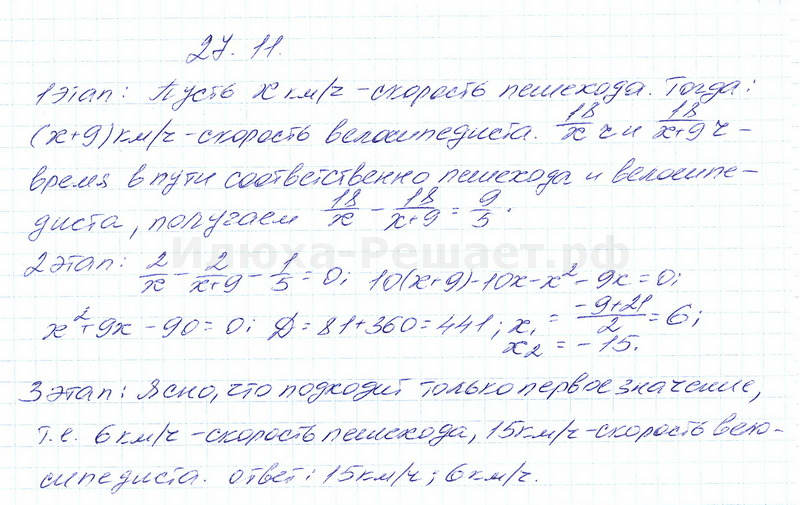 27.11.
1 этап: Пусть x км/ч - скорость пешехода. Тогда:
(x+9) км/ч - скорость велосипедиста. 18/x ч и 18/x+9 ч -
время в пути соответственно пешехода и велосипе-
диста, получаем 18/x - 18/x+9 = 9/5.
Илюха-Решает.рф
2 этап: 2/x - 2/x+9 - 1/5 = 0; 10(x+9)-10x-x²-9x=0;
x²+9x-90=0; D=81+360=441; x₁ = -9+21/2 = 6;
x₂ = -15.
3 этап: Ясно, что подходит только первое значение,
т.е. 6 км/ч - скорость пешехода, 15 км/ч - скорость вело-
сипедиста. ответ: 15 км/ч; 6 км/ч.